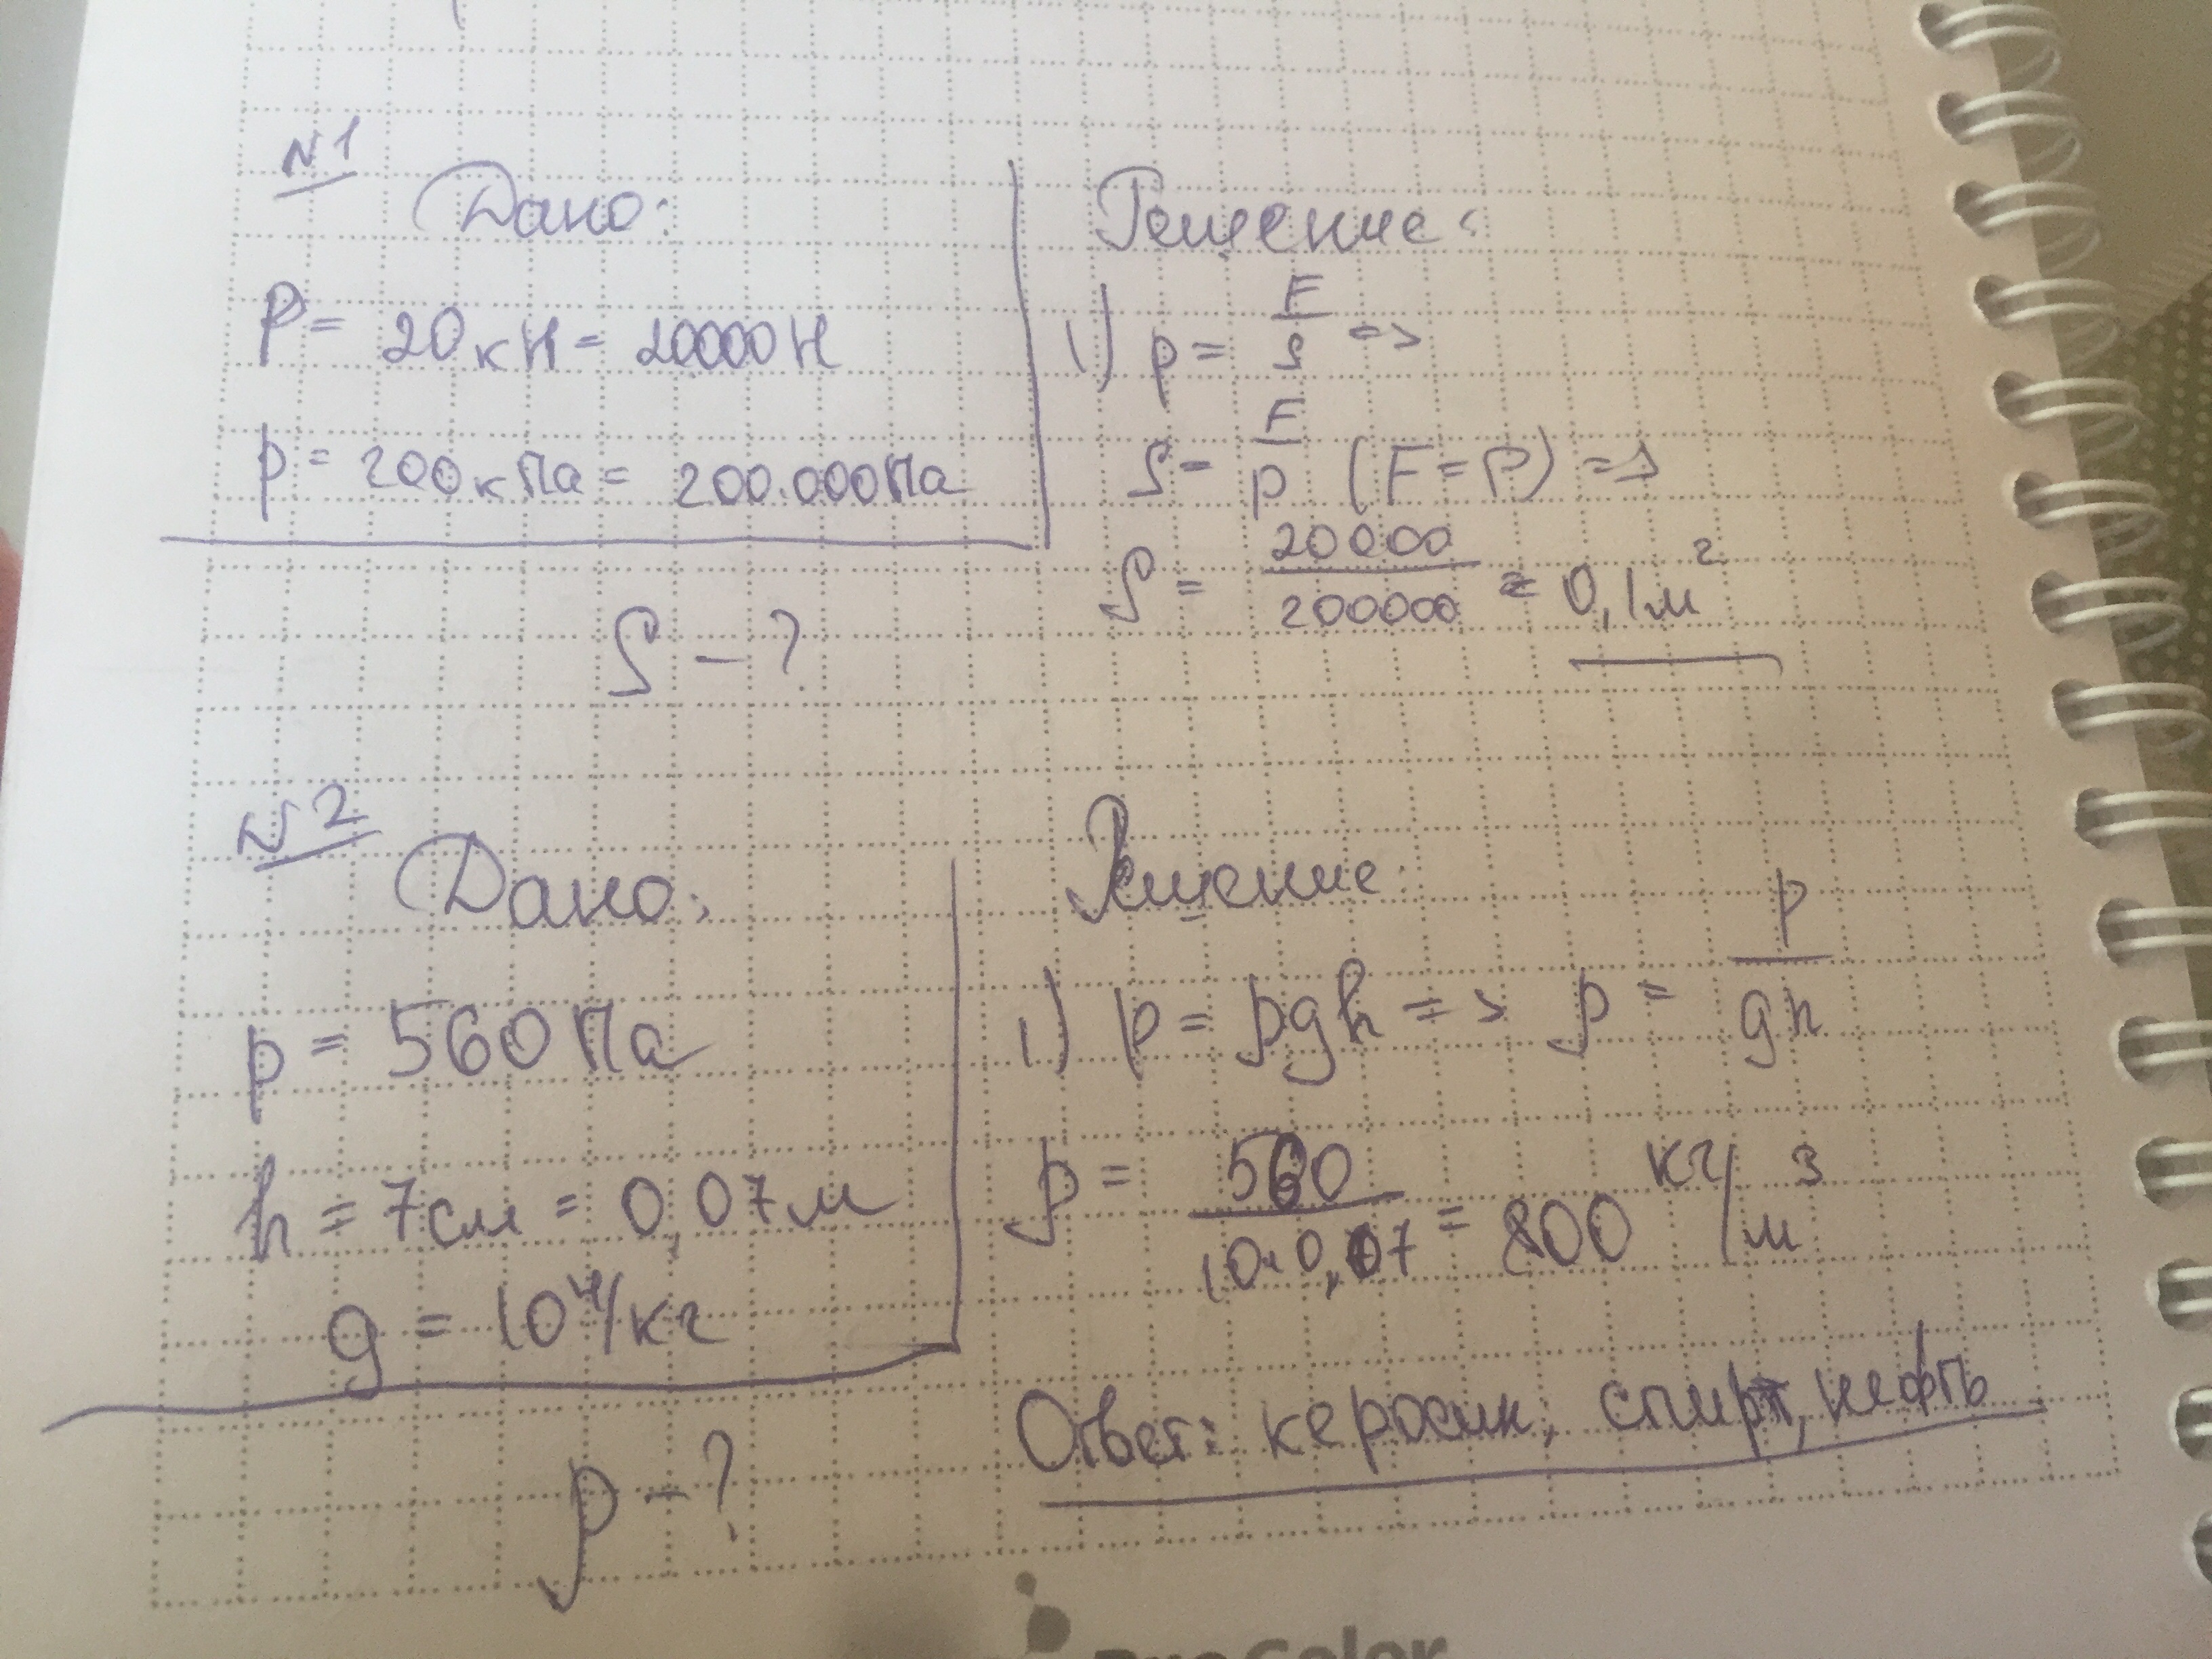 N1
Дано:
P = 20кН = 20000Н
p = 200кПа = 200.000Па
S - ?
Решение:
1) p = F/S =>
S = F/p (F = P) =>
S = 20000/200000 = 0,1м²
N2
Дано:
p = 560Па
h = 7см = 0,07м
g = 10Н/кг
ρ - ?
Решение:
1) p = ρgh => ρ = p/gh
ρ = 560/10·0,07 = 800 кг/м³
Ответ: керосин, спирт, нефть